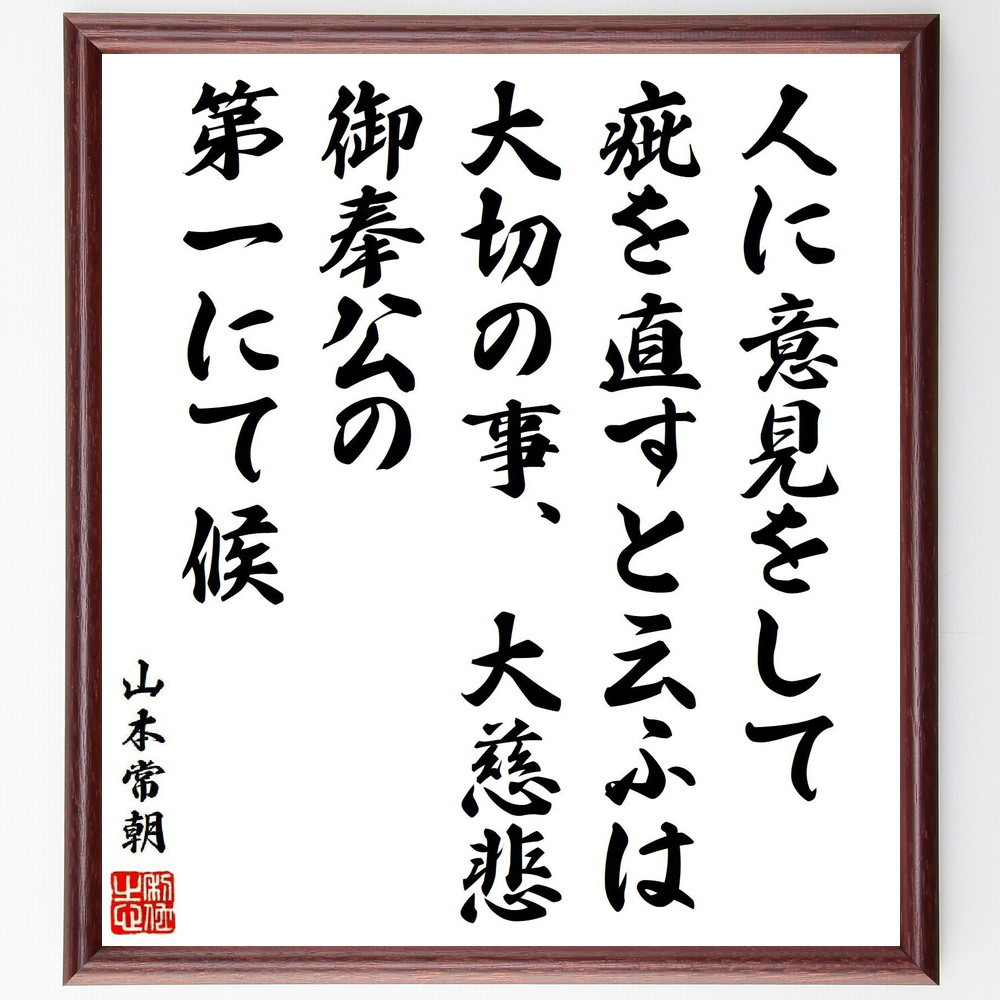 人に意見をして
疵を直すと云ふは
大切の事、　大慈悲
御奉公の
第一にて候
山本常朝